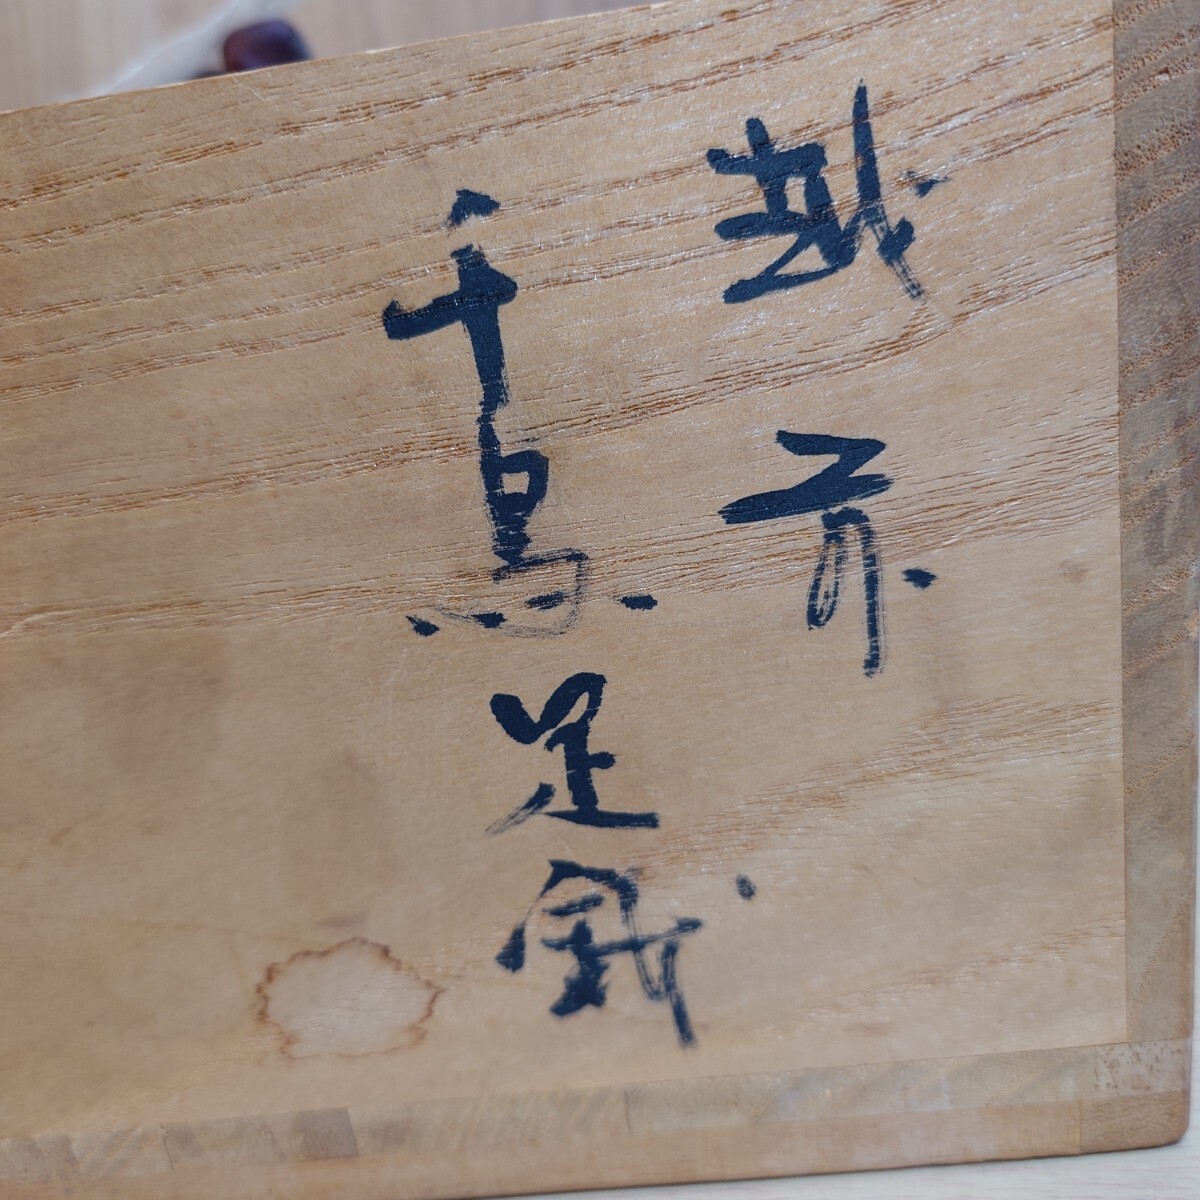 越前
千鳥足鉢